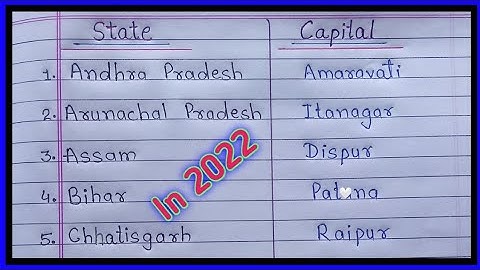 State Capital
1. Andhra Pradesh Amaravati
2. Arunachal Pradesh Itanagar
3. Assam Dispur
4. Bihar Patna
5. Chhatisgarh Raipur
In 2022